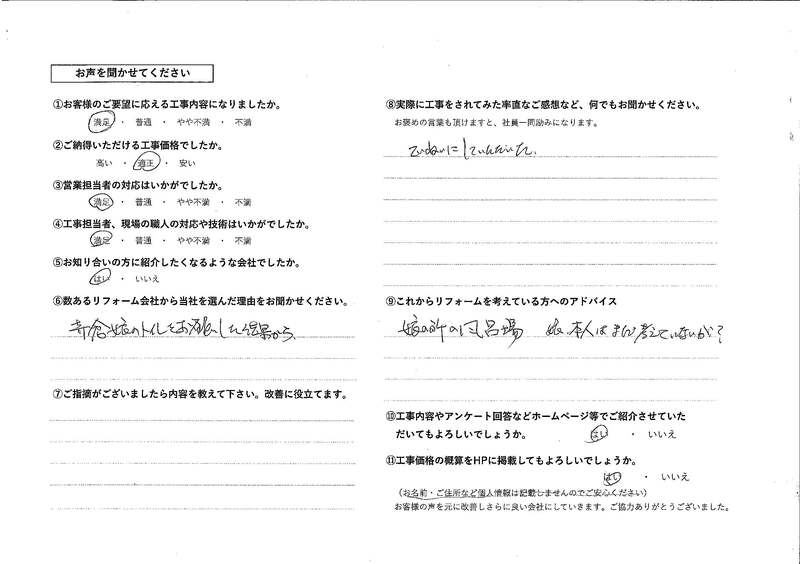 お声を聞かせてください
①お客様のご要望に応える工事内容になりましたか。
満足 ・ 普通 ・ やや不満 ・ 不満
②ご納得いただける工事価格でしたか。
高い ・ 適正 ・ 安い
③営業担当者の対応はいかがでしたか。
満足 ・ 普通 ・ やや不満 ・ 不満
④工事担当者、現場の職人の対応や技術はいかがでしたか。
満足 ・ 普通 ・ やや不満 ・ 不満
⑤お知り合いの方に紹介したくなるような会社でしたか。
はい ・ いいえ
⑥数あるリフォーム会社から当社を選んだ理由をお聞かせください。
娘のトイレをお願いした結果から
⑦ご指摘がございましたら内容を教えて下さい。改善に役立てます。
⑧実際に工事をされてみた率直なご感想など、何でもお聞かせください。
お褒めの言葉も頂けますと、社員一同励みになります。
ていねいにしていただいた。
⑨これからリフォームを考えている方へのアドバイス
娘の所の風呂場 娘本人はまだ考えていないが?
⑩工事内容やアンケート回答などホームページ等でご紹介させていた
だいてもよろしいでしょうか。 はい ・ いいえ
⑪工事価格の概算をHPに掲載してもよろしいでしょうか。
はい ・ いいえ
（お名前・ご住所など個人情報は記載しませんのでご安心ください）
お客様の声を元に改善しさらに良い会社にしていきます。ご協力ありがとうございました。